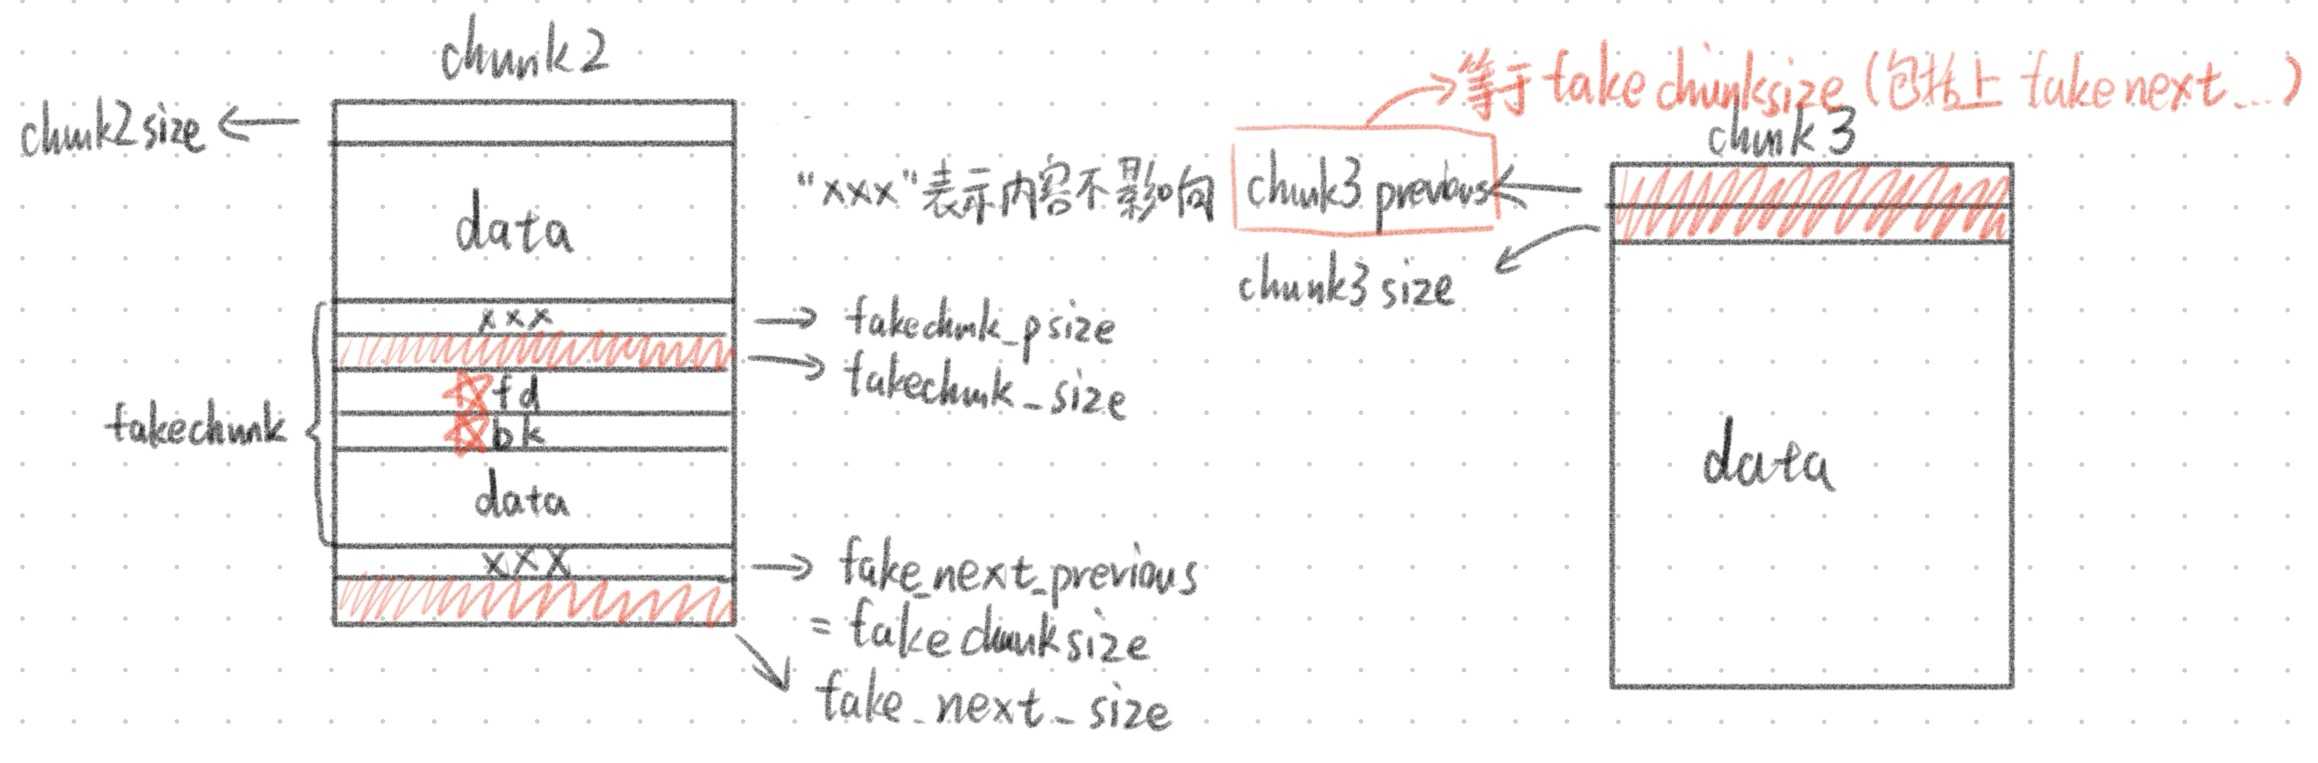 chunk2
chunk2size
data
xxx
fakechunk_psize
fakechunk_size
fd
bk
fakechunk
data
xxx
fake_next_previous
= fakechunksize
fake_next_size
等于fakechunksize(包括上 fakenext...)
chunk3
"xxx"表示内容不影向
chunk3previous
chunk3size
data